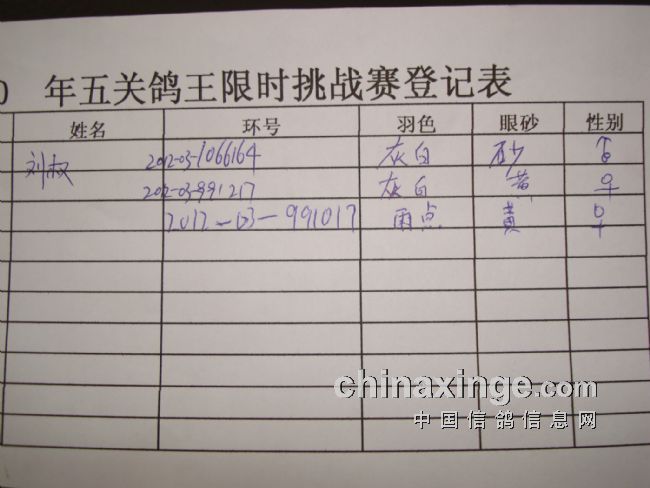 0 年五关鸽王限时挑战赛登记表
姓名 环号 羽色 眼砂 性别
刘权 2012-03-1066164 灰白 砂 ♂
2012-03-991217 灰白 黄 ♀
2012-03-991017 雨点 黄 ♀
chinaxinge.com
中国信鸽信息网